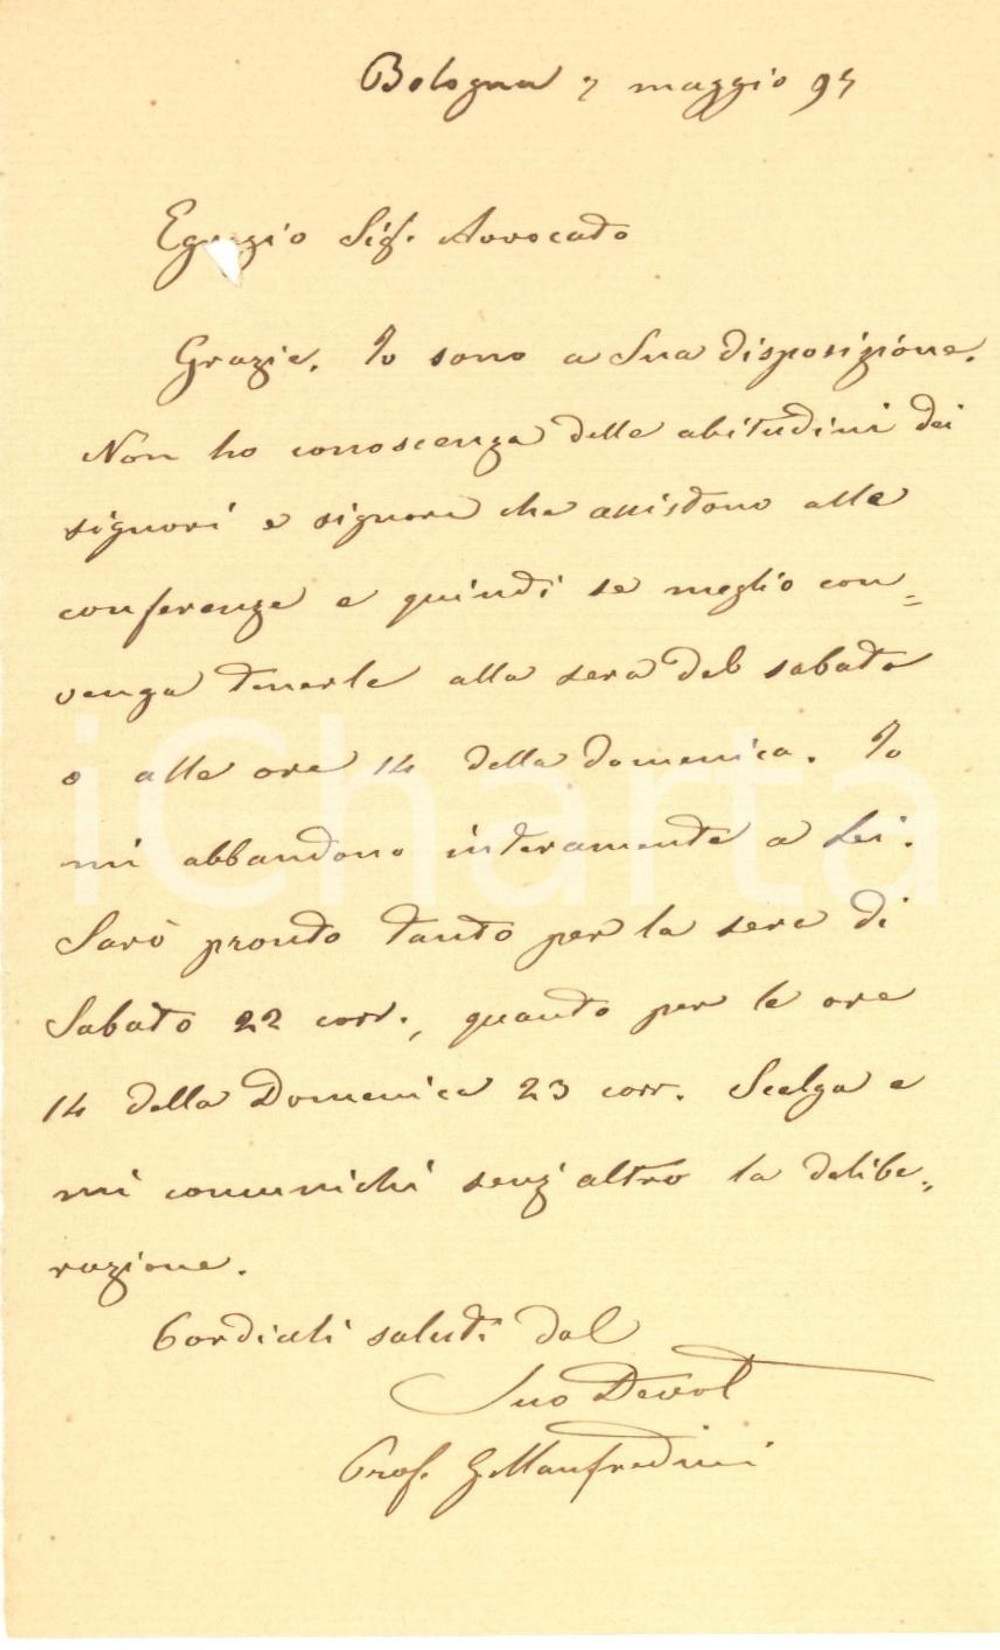 Bologna 7 maggio 97
Egregio Sig. Avvocato
Grazie. Io sono a Sua disposizione.
Non ho conoscenza delle abitudini dei
signori e signore che assistono alle
conferenze e quindi se meglio con=
venga tenerle alla sera del sabato
o alle ore 14 della domenica. Io
mi abbandono interamente a Lei.
Sarò pronto tanto per la sera di
Sabato 22 corr., quanto per le ore
14 della Domenica 23 corr. Scelga e
mi comunichi senz'altro la delibe=
razione.
Cordiali saluti dal
Suo Devot
Prof. G. Manfredini
iCharta